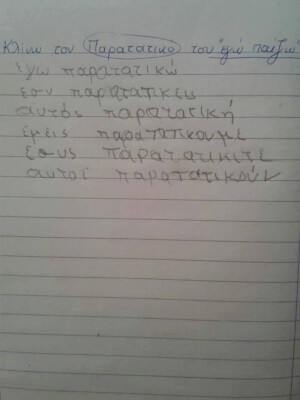 Κλίνω τον Παρατατικό του "εγώ παίζω"
εγω παρατατικώ
εσυ παρατατικεις
αυτός παρατατική
εμεις παρατατικουμε
εσυς παρατατικιτε
αυτοί παρατατικούν